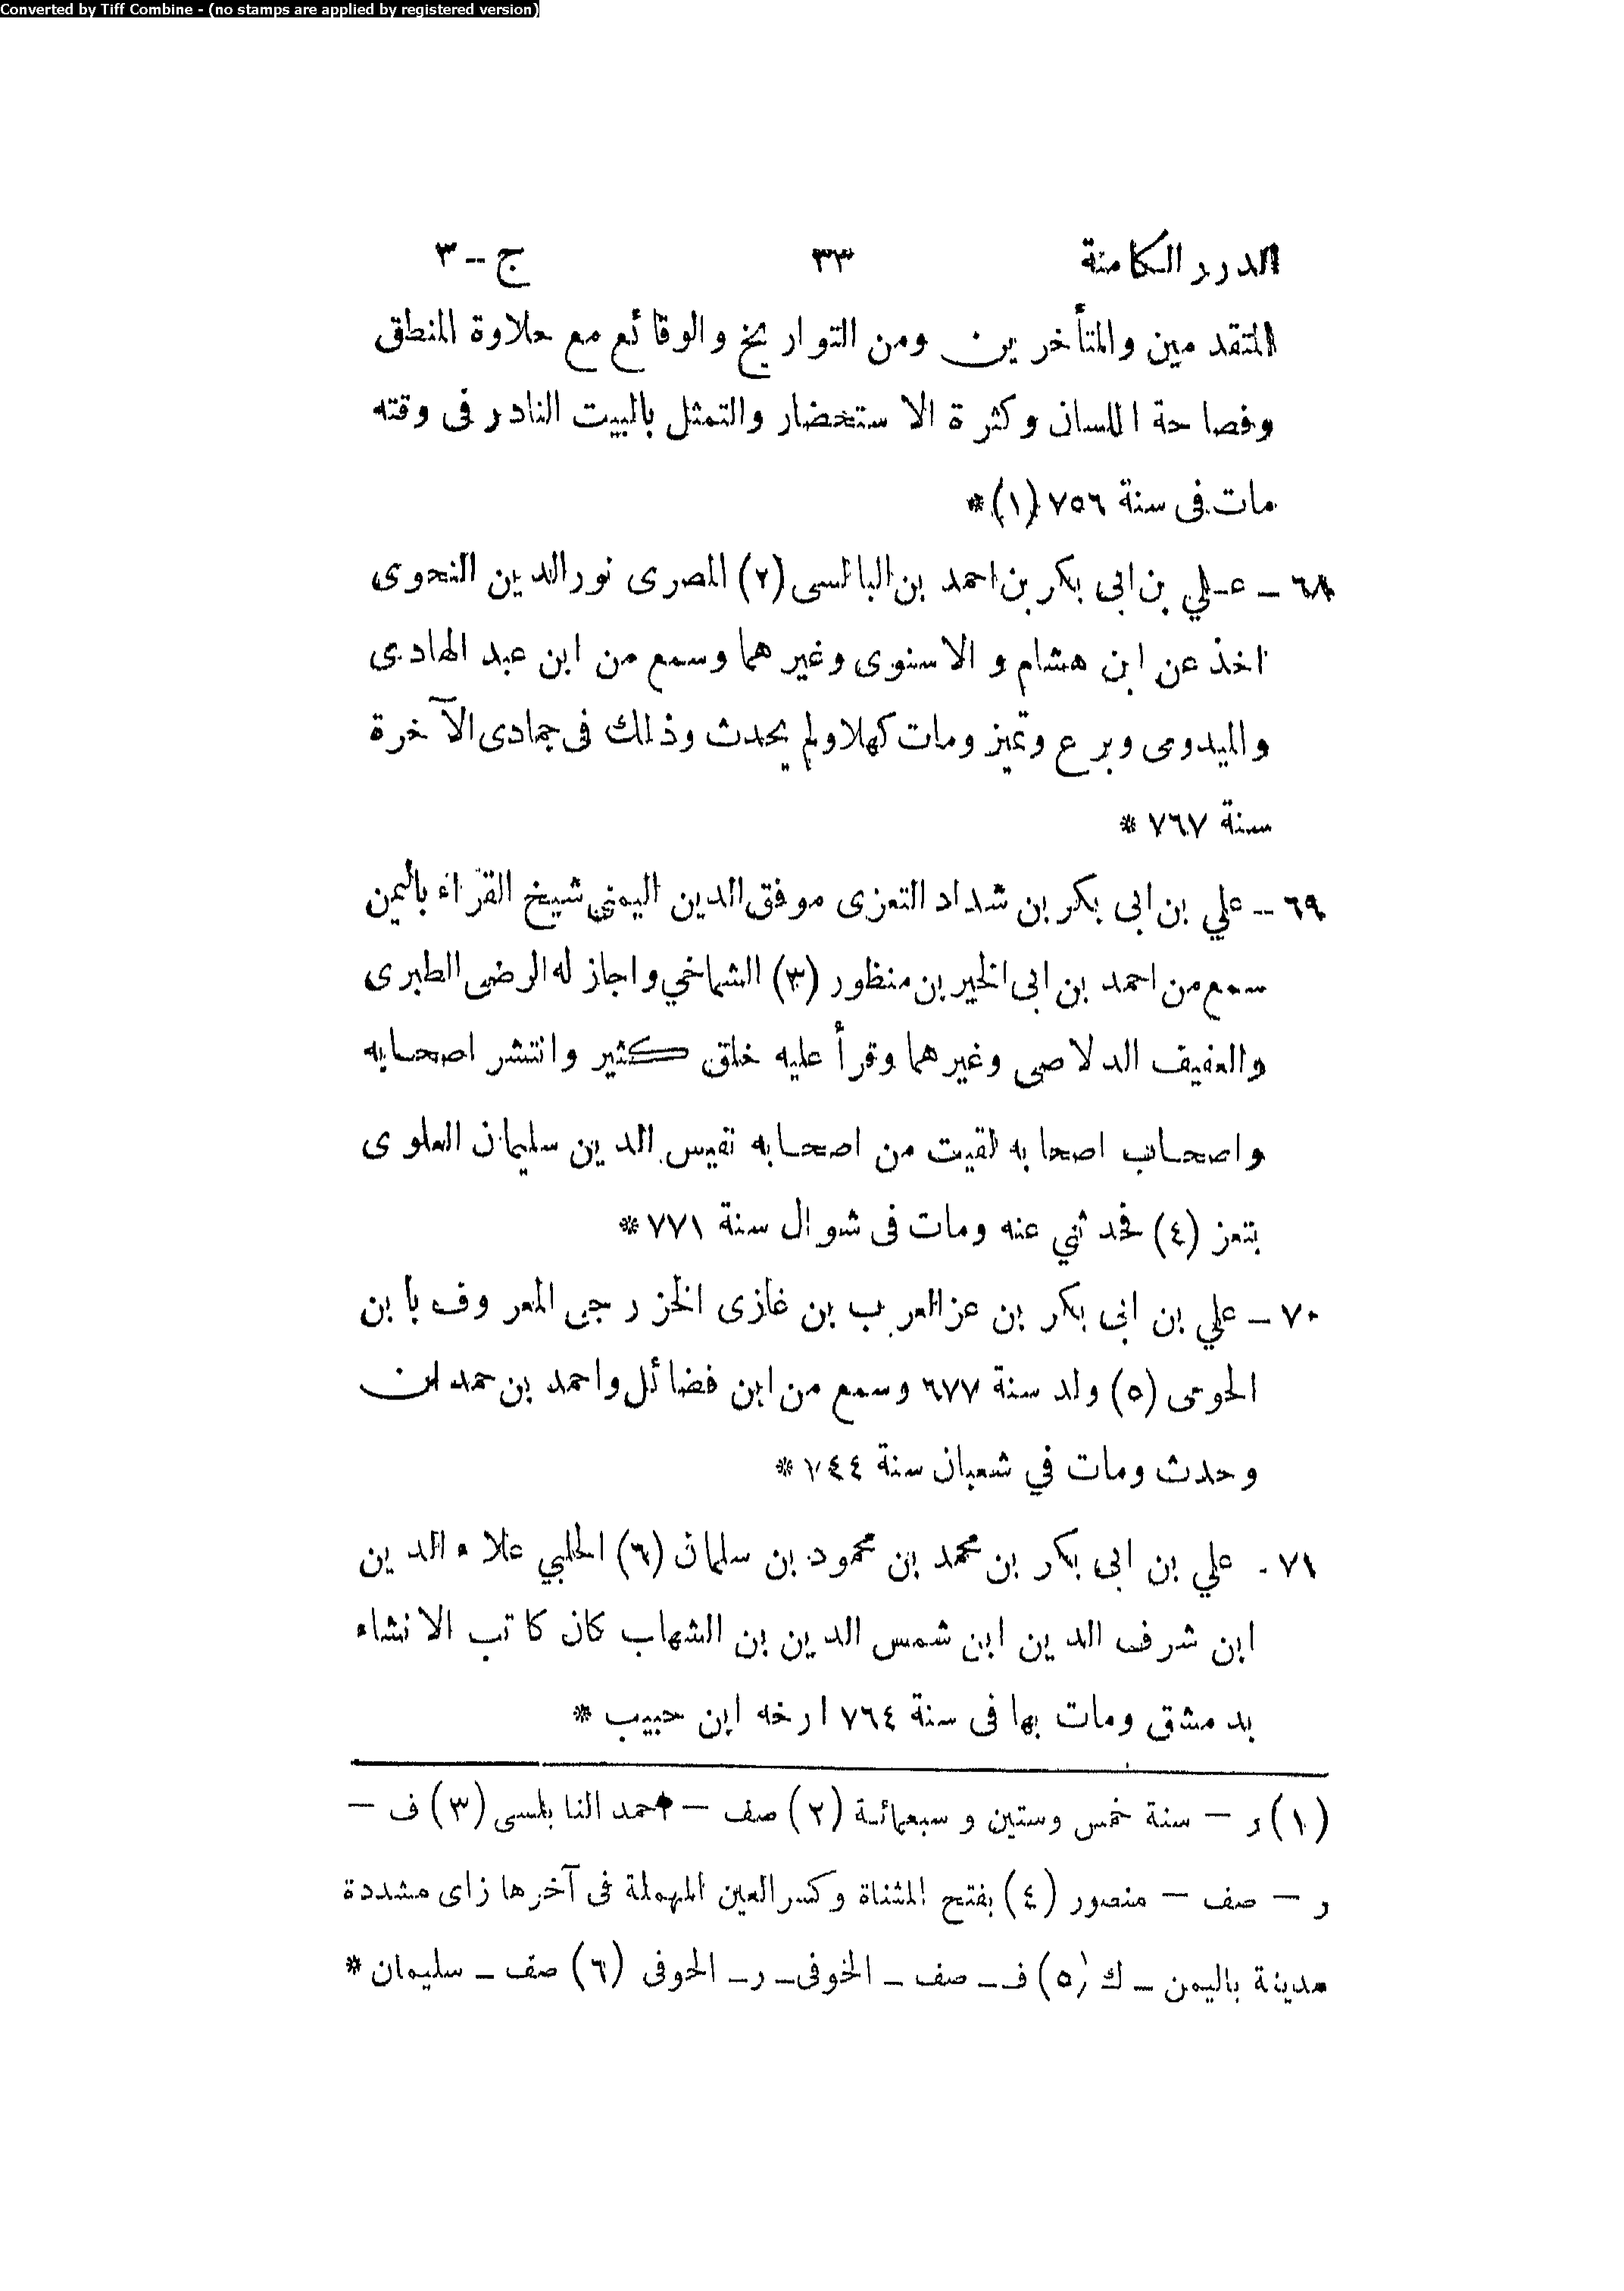 Converted by Tiff Combine - (no stamps are applied by registered version)
الدرر الكامنة ٣٣ ج -- ٣
المتقدمين والمتأخرين ومن التواريخ والوقائع مع حلاوة المنطق
وفصاحة اللسان وكثرة الاستحضار والتمثل بالبيت النادر فى وقته
مات فى سنة ٧٥٦ (١) *
٦٨ - علي بن ابى بكر بن احمد بن البالسى (٢) المصرى نور الدين النحوى
اخذ عن ابن هشام والاسنوى وغيرهما وسمع من ابن عبد الهادى
والميدومى وبرع وتميز ومات كهلا ولم يحدث وذلك فى جمادى الآخرة
سنة ٧٦٧ *
٦٩ -- علي بن ابى بكر بن شداد التعزى موفق الدين اليمني شيخ القرّاء باليمن
سمع من احمد بن ابى الخير بن منظور (٣) الشماخي واجاز له الرضى الطبرى
والعفيف الدلاصى وغيرهما وقرأ عليه خلق كثير وانتشر اصحابه
واصحاب اصحابه لقيت من اصحابه نفيس الدين سليمان العلوى
بتعز (٤) فحدثني عنه ومات فى شوال سنة ٧٧١ *
٧٠ - علي بن ابى بكر بن عز العرب بن غازى الخزرجى المعروف بابن
الحومى (٥) ولد سنة ٦٧٧ وسمع من ابن فضائل واحمد بن حمدان
وحدث ومات في شعبان سنة ٧٤٤ *
٧١ - علي بن ابى بكر بن محمد بن محمود بن سلمان (٦) الحلبي علاء الدين
ابن شرف الدين ابن شمس الدين بن الشهاب كان كاتب الانشاء
بدمشق ومات بها فى سنة ٧٦٤ ارخه ابن حبيب *
(١) ر - سنة خمس وستين وسبعمائة (٢) صف - احمد النابلسى (٣) ف -
ر - صف - منصور (٤) بفتح المثناة وكسر العين المهملة فى آخرها زاى مشددة
مدينة باليمن - ك (٥) ف - صف - الخوفى - ر - الحوفى (٦) صف - سليمان *